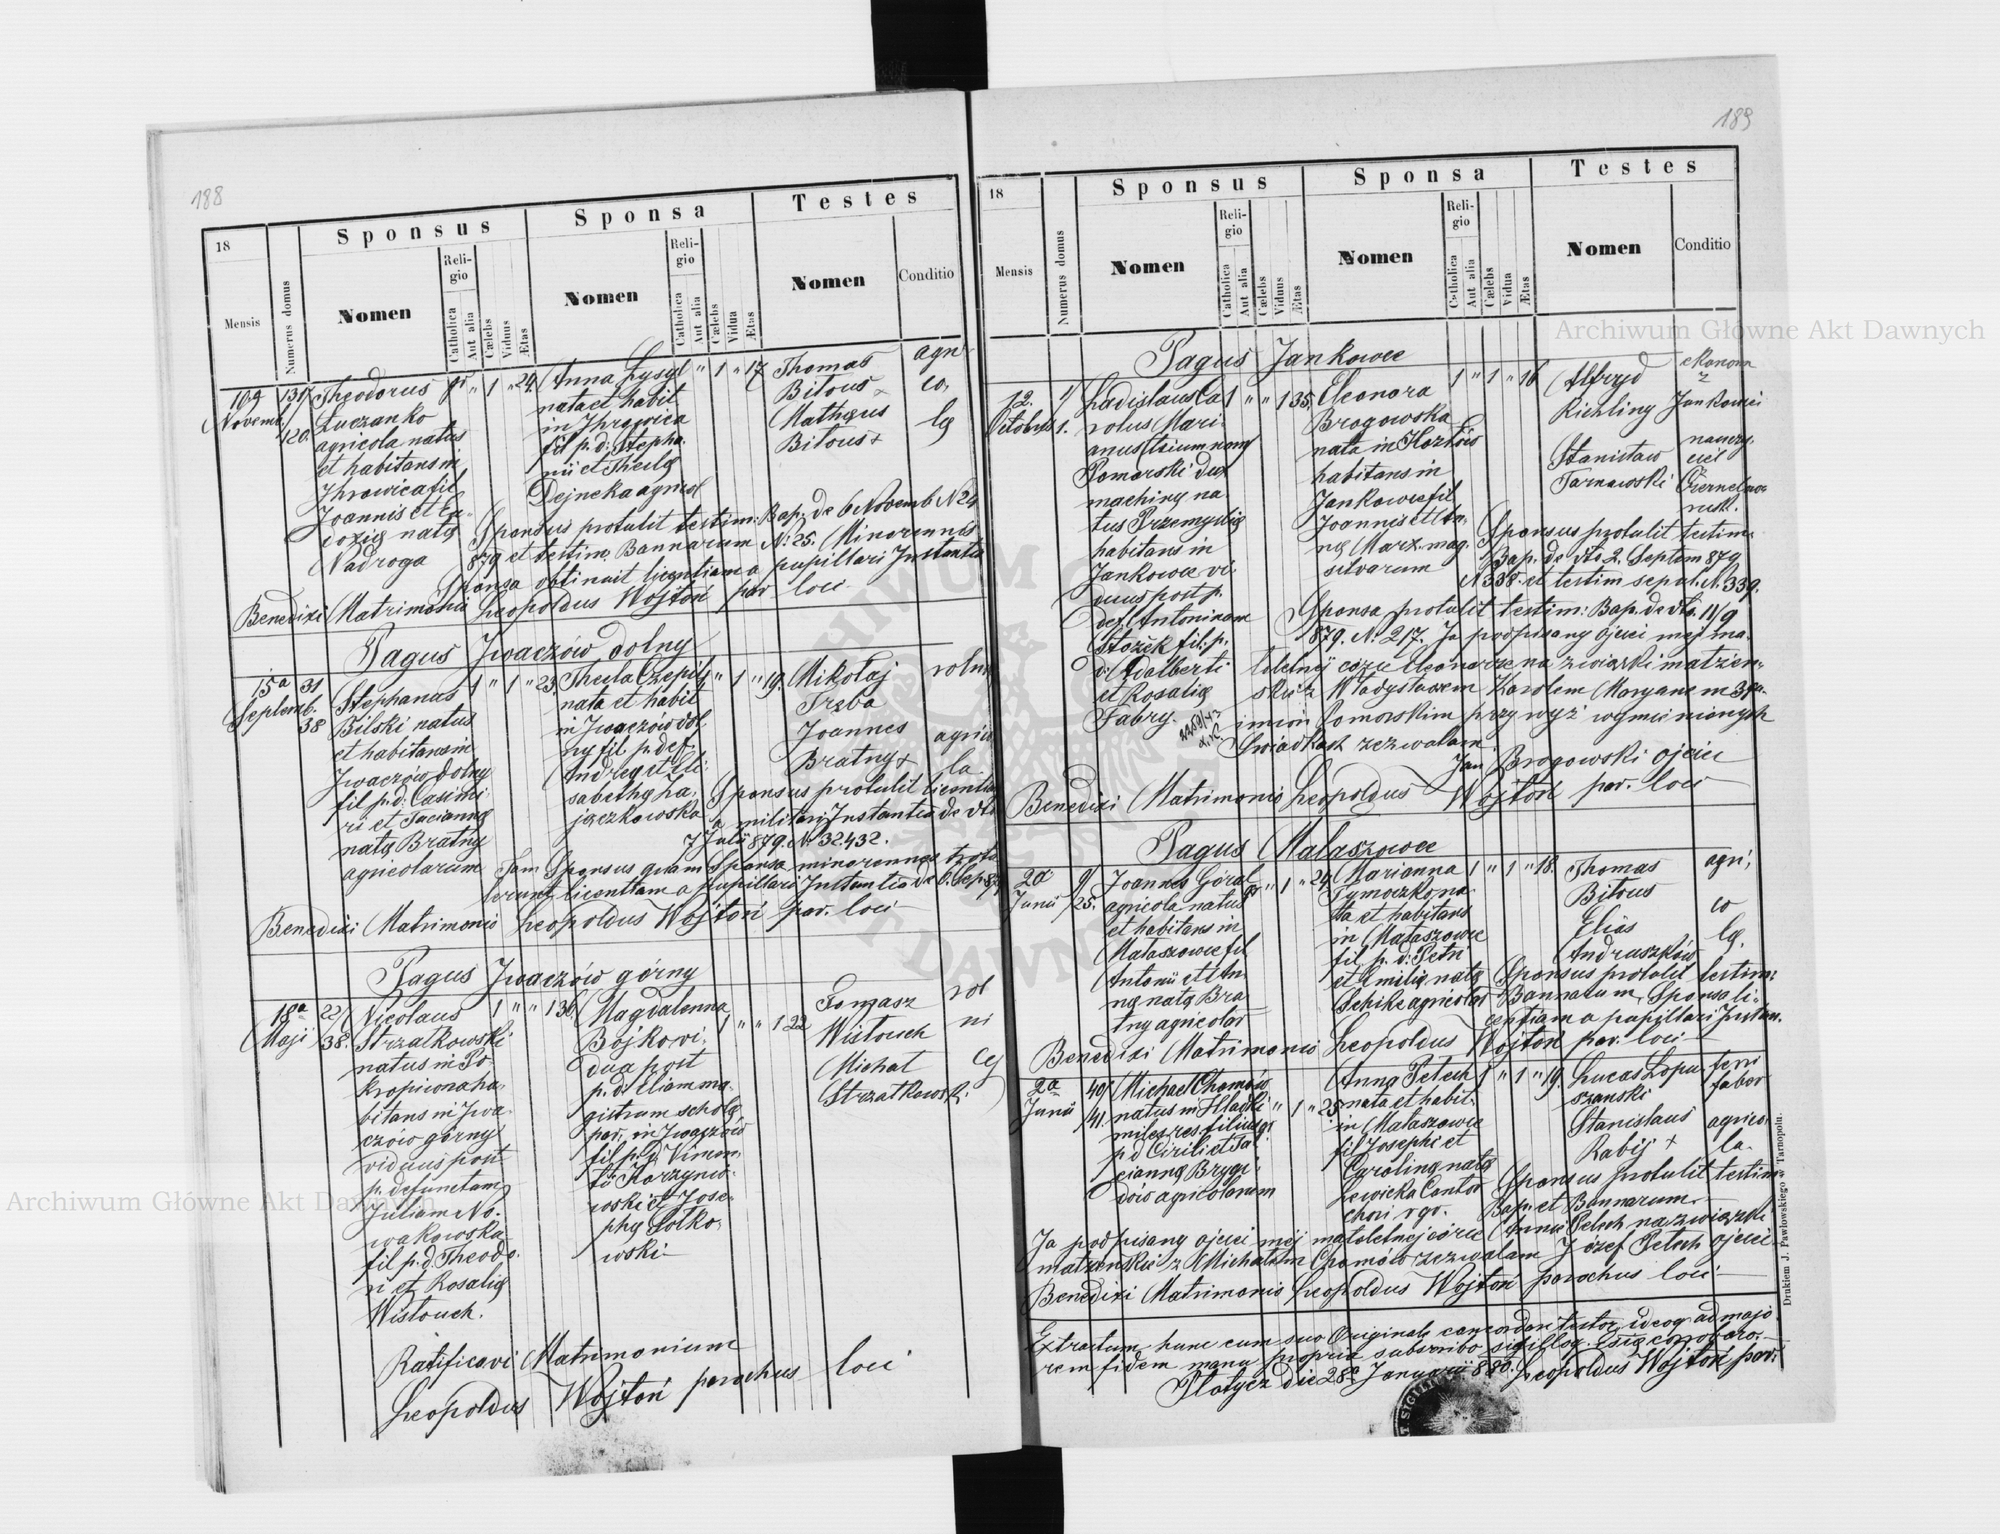 188
18
Mensis
Numerus domus
Sponsus
Nomen
Religio
Catholica
Aut alia
Cælebs
Viduus
Ætas
Sponsa
Nomen
Religio
Catholica
Aut alia
Cælebs
Vidua
Ætas
Testes
Nomen
Conditio
Novemb.
131/120.
Theodorus
Łuczanko
agricola natus
et habitans in
Ihrowica fil
Joannis et
natę
Nadroga
1 " 24
Anna Łysyl
nata et habit
in Ihrowica
fil p. d. Stepha
nii et Theclę
Dejneka agricol
" 1 " 17
Thomas
Bilous x
Matheus
Bilous +
agri
co,
lę
Sponsus protulit testim: Bap. de 6 Novemb N 24
879 et testim. Bannarum N: 25. Minorennis
Sponsa obtinuit licentiam a pupillari Instantia
Benedixi Matrimonio Leopoldus Wojtoń par loci
Pagus Iwaczów dolny
15ª Septemb.
31
38
Stephanus
Bilski natus
et habitans in
Iwaczów dolny
fil p. d. Casimi
ri et Tacianę
natę Bratny
agricolarum
1 " 1 " 23
Thecla Czepil
nata et habit
in Iwaczów dol
ny fil p. def.
Andreę et Eli:
sabethę Za,
jączkowska
" 1 " 19.
Mikołaj
Treba
Joannes
Bratny +
rolnik
agrico
la
Sponsus protulit licentiam
a militari Instantia de dto
7 Julii 879. N. 32432.
Tam Sponsus quam Sponsa minorennes protu
lerunt licentiam a pupillari Instantia de 6. Sep 879
Benedixi Matrimonio Leopoldus Wojtoń par. loci
Pagus Iwaczów górny
18ª Maji
22/38.
Nicolaus
Strzałkowski
natus in Po
kropiwna ha,
bitans in Iwa
czów górny
viduus post
p. defunctam
Juliam No,
wakowska
fil p. d Theodo
ri et Rosalię
Wistouch.
1 " " 1 36.
Magdalenna
Bójko vi,
dua post
p. d. Eliam ma,
gistrum scholę
par, in Iwaczów
fil p. d Vincen,
tii Korzynio
wski et Jose,
phę Sotko,
wski
1 " " 1 22
Tomasz
Wistouch
Michał
Strzałkowski
rol
ni
cy
Ratificavi Matrimonium
Leopoldus Wojtoń parochus loci
189
18
Mensis
Numerus domus
Sponsus
Nomen
Religio
Catholica
Aut alia
Cælebs
Viduus
Ætas
Sponsa
Nomen
Religio
Catholica
Aut alia
Cælebs
Vidua
Ætas
Testes
Nomen
Conditio
Pagus Jankowce
12. Octobris
1/1.
Ladislaus Ca
rolus Mari
anus trium nom
Pomorski dux
machinę na
tus Przemyślię
habitans in
Jankowce vi,
duus post p.
def. Antoninam
Stożek fil. p.
d. Adalberti
et Rosalię
Fabry.
1 " " 1 35.
Eleonora
Brogowska
nata in Kozłów
habitans in
Jankowce fil
Joannis et An,
nę Marz mag.
silvarum
1 " 1 " 16
Alfred
Richling
Stanisław
Tarnawski
ekonom
z
Jankowci
nauczy
ciel
Sponsus protulit testim:
Bap. de dto 2. Septem 879
N 338. et testim sepul. N. 339.
Sponsa protulit testim: Bap. de dto 11/9
879. N. 217. Ja podpisany ojciec mej ma,
łoletnij córce Eleonorze na związki małżen,
skie z Władysławem Karolem Maryanem 3ga
imion Pomorskim przy wyż wymienionych
Świadkach zezwalam.
Jan Brogowski ojciec
Benedixi Matrimonio Leopoldus Wojtoń par. loci
Pagus Małaszowce
2ª Junii
9/25.
Joannes Góral
agricola natus
et habitans in
Małaszowce fil
Antonii et An
nę natę Bra
tny agricolar
" 1 " 24
Marianna
Tymoczko na
ta et habitans
in Małaszowce
fil p. d. Petri
et Emilię natę
Schike agricolar
1 " 1 " 18.
Thomas
Bilous
Elias
Andruszków
agri,
co
lę.
Sponsus protulit testim:
Bannarum, Sponsa li,
centiam a pupillari Instan.
Benedixi Matrimonio Leopoldus Wojtoń par. loci
2ª Junii
40/41.
Michael Chomów
natus in Hladki
miles res. filius
p d Cirili et Ta
cianna Brygi
dów agricolarum
" 1 " 25
Anna Petech
nata et habit:
in Małaszowce
fil Josephi et
Carolinę natę
Lewicka Cantor
chori r gr.
1 " 1 " 19.
Lucas Łopu
szanski
Stanislaus
Rabij +
ferri
faber
agrico,
la
Sponsus protulit testim
Bap. et Bannarum
Ja podpisany ojciec mej małoletnej córce Annie Petech na związki
małżenskie z Michałem Chomów zezwalam Józef Petech ojciec
Benedixi Matrimonio Leopoldus Wojtoń parochus loci
Extractum hunc cum suo Originale concordare testor, ideoq. ad majo
rem fidem manu propria subscribo sigilloq. Ecclę corroboro.
Płotycz die 28ª Januarii 880. Leopoldus Wojtoń par.
Drukiem J. Pawłowskiego w Tarnopolu.
Archiwum Główne Akt Dawnych
Archiwum Główne Akt Dawnych